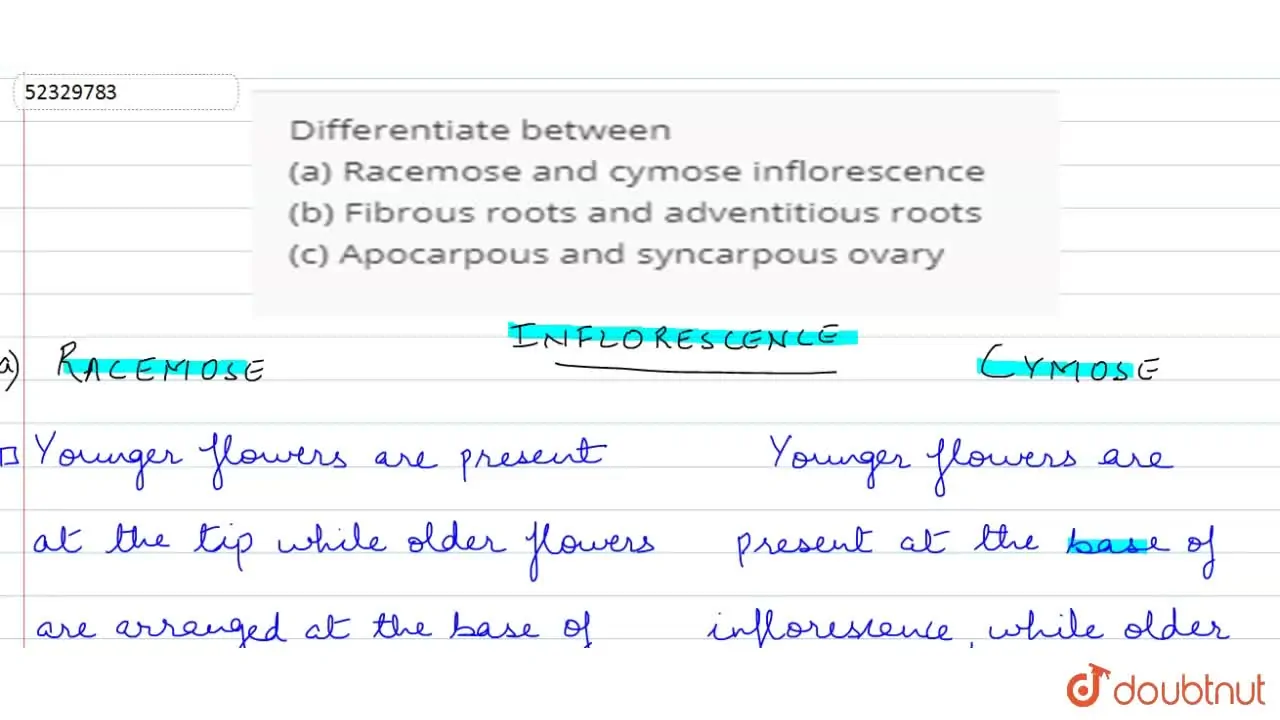 52329783
Differentiate between
(a) Racemose and cymose inflorescence
(b) Fibrous roots and adventitious roots
(c) Apocarpous and syncarpous ovary
INFLORESCENCE
a) RACEMOSE CYMOSE
Younger flowers are present
at the tip while older flowers
are arranged at the base of
Younger flowers are
present at the base of
inflorescence, while older
doubtnut